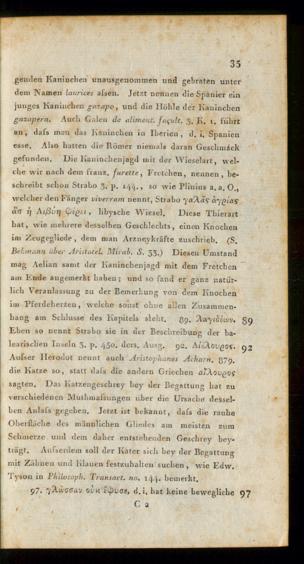 35
genden Kaninchen unausgenommen und gebraten unter
dem Namen laurices alsen. Jetzt nennen die Spanier ein
junges Kaninchen gazapo, und die Höhle der Kaninchen
gazapera. Auch Galen de aliment. facult. 3. K. 1. führt
an, daſs man das Kaninchen in Iberien, d. i. Spanien
esse. Also hatten die Römer niemals daran Geschmack
gefunden. Die Kaninchenjagd mit der Wieselart, wel-
che wir nach dem franz. furette, Fretchen, nennen, be-
schreibt schon Strabo 3. p. 144., so wie Plinius a. a. O.,
welcher den Fänger viverram nennt, Strabo γαλᾶς ἀγρίας
ἃς ἡ Λιβύη φέρει, libysche Wiesel. Diese Thierart
hat, wie mehrere desselben Geschlechts, einen Knochen
im Zeugegliede, dem man Arzneykräfte zuschrieb. (S.
Bekmann über Aristotel. Mirab. S. 33.) Diesen Umstand
mag Aelian samt der Kaninchenjagd mit dem Fretchen
am Ende angemerkt haben; und so fand er ganz natür-
lich Veranlassung zu der Bemerkung von dem Knochen
im Pferdeherzen, welche sonst ohne allen Zusammen-
hang am Schlusse des Kapitels steht. 89. Λαγιδίων. 89
Eben so nennt Strabo sie in der Beschreibung der ba-
learischen Inseln 3. p. 450. ders. Ausg. 92. Αἰέλουρος. 92
Auſser Herodot nennt auch Aristophanes Acharn. 879.
die Katze so, statt daſs die andern Griechen αἴλουρος
sagten. Das Katzengeschrey bey der Begattung hat zu
verschiedenen Muthmaſsungen über die Ursache dessel-
ben Anlaſs gegeben. Jetzt ist bekannt, daſs die rauhe
Oberfläche des männlichen Gliedes am meisten zum
Schmerze und dem daher entstehenden Geschrey bey-
trägt. Auſserdem soll der Kater sich bey der Begattung
mit Zähnen und Klauen festzuhalten suchen, wie Edw.
Tyson in Philosoph. Transact. no. 144. bemerkt.
97. γλῶσσαν οὐκ ἔφυσε, d. i. hat keine bewegliche 97
C 2